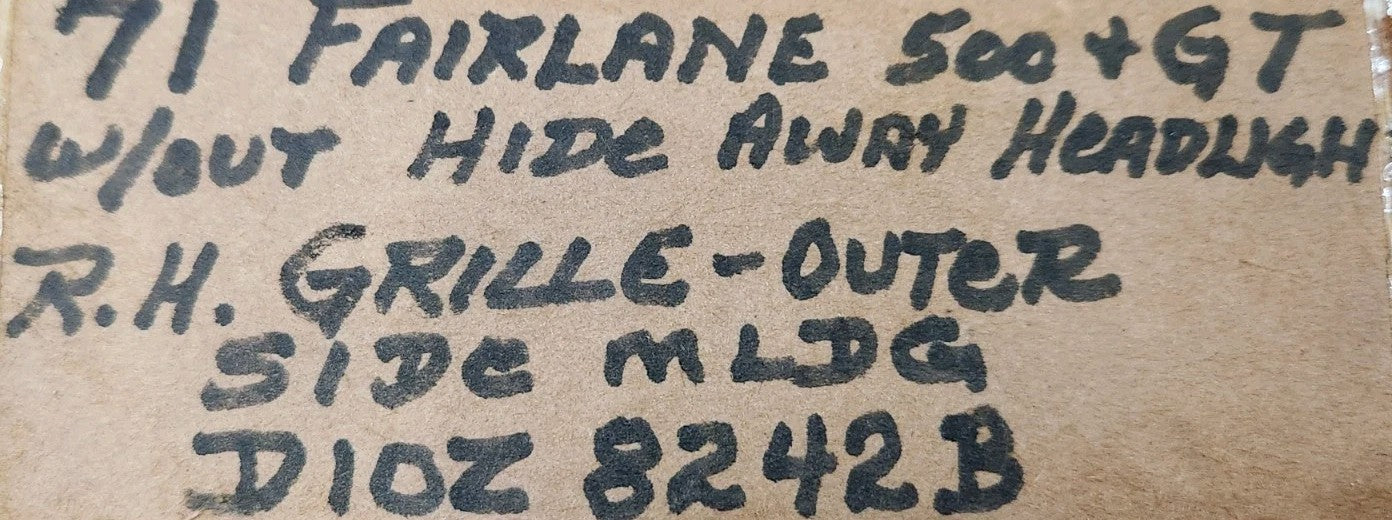 71 FAIRLANE 500 + GT
W/OUT HIDe AWAY HeADLIGH
R.H. GRILLE-OUTeR
SIDe MLDG
D1OZ 8242B